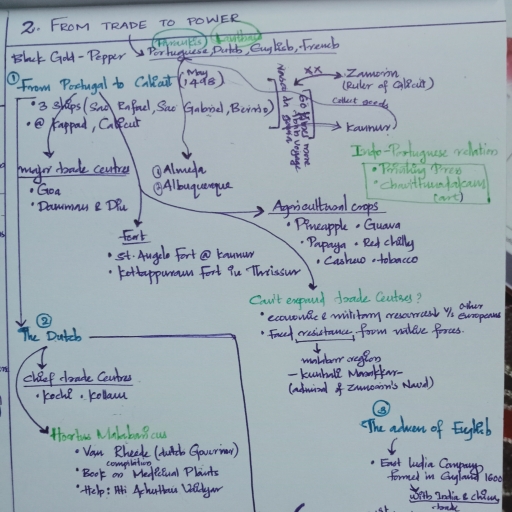 2. FROM TRADE TO POWER
Black Gold - Pepper
Portuguese, Dutch, English, French
① From Portugal to Calicut (May 1498)
• 3 ships (Sao Rafael, Sao Gabriel, Berrio)
• @ Kappad, Calicut
Vasco da Gama
XX
Zamorin
(Ruler of Calicut)
collect goods
Kannur
major trade centres
• Goa
• Dammam & Diu
① Almeda
② Albuquerque
Indo-Portuguese relation
• Printing Press
• Chavittunadakam
(art)
Agricultural crops
• Pineapple • Guava
• Papaya • Red chilly
• Cashew • tobacco
Fort
• St. Angelo Fort @ Kannur
• Kottappuram Fort in Thrissur
Can't expand trade centres?
• economic & military resources V/s other Europeans
• Faced resistance, from native forces.
malabar region
- Kunhali Marakkar -
(admiral of Zamorin's Naval)
②
The Dutch
chief trade centres
• Kochi • Kollam
Hortus Malabaricus
• Van Rheede (dutch Governor)
compilation
• Book on Medicinal Plants
• Help: Itti Achuthan Vaidyar
③
The adven of English
• East India Company
formed in England 1600
with India & china
trade